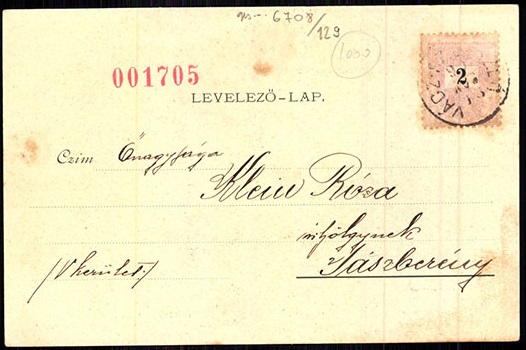 6708/129
1000
001705
2
VÁCZ
LEVELEZŐ-LAP.
Czim Őnagysága
Klein Róza
úrhölgynek
Jászberény
/V kerület./